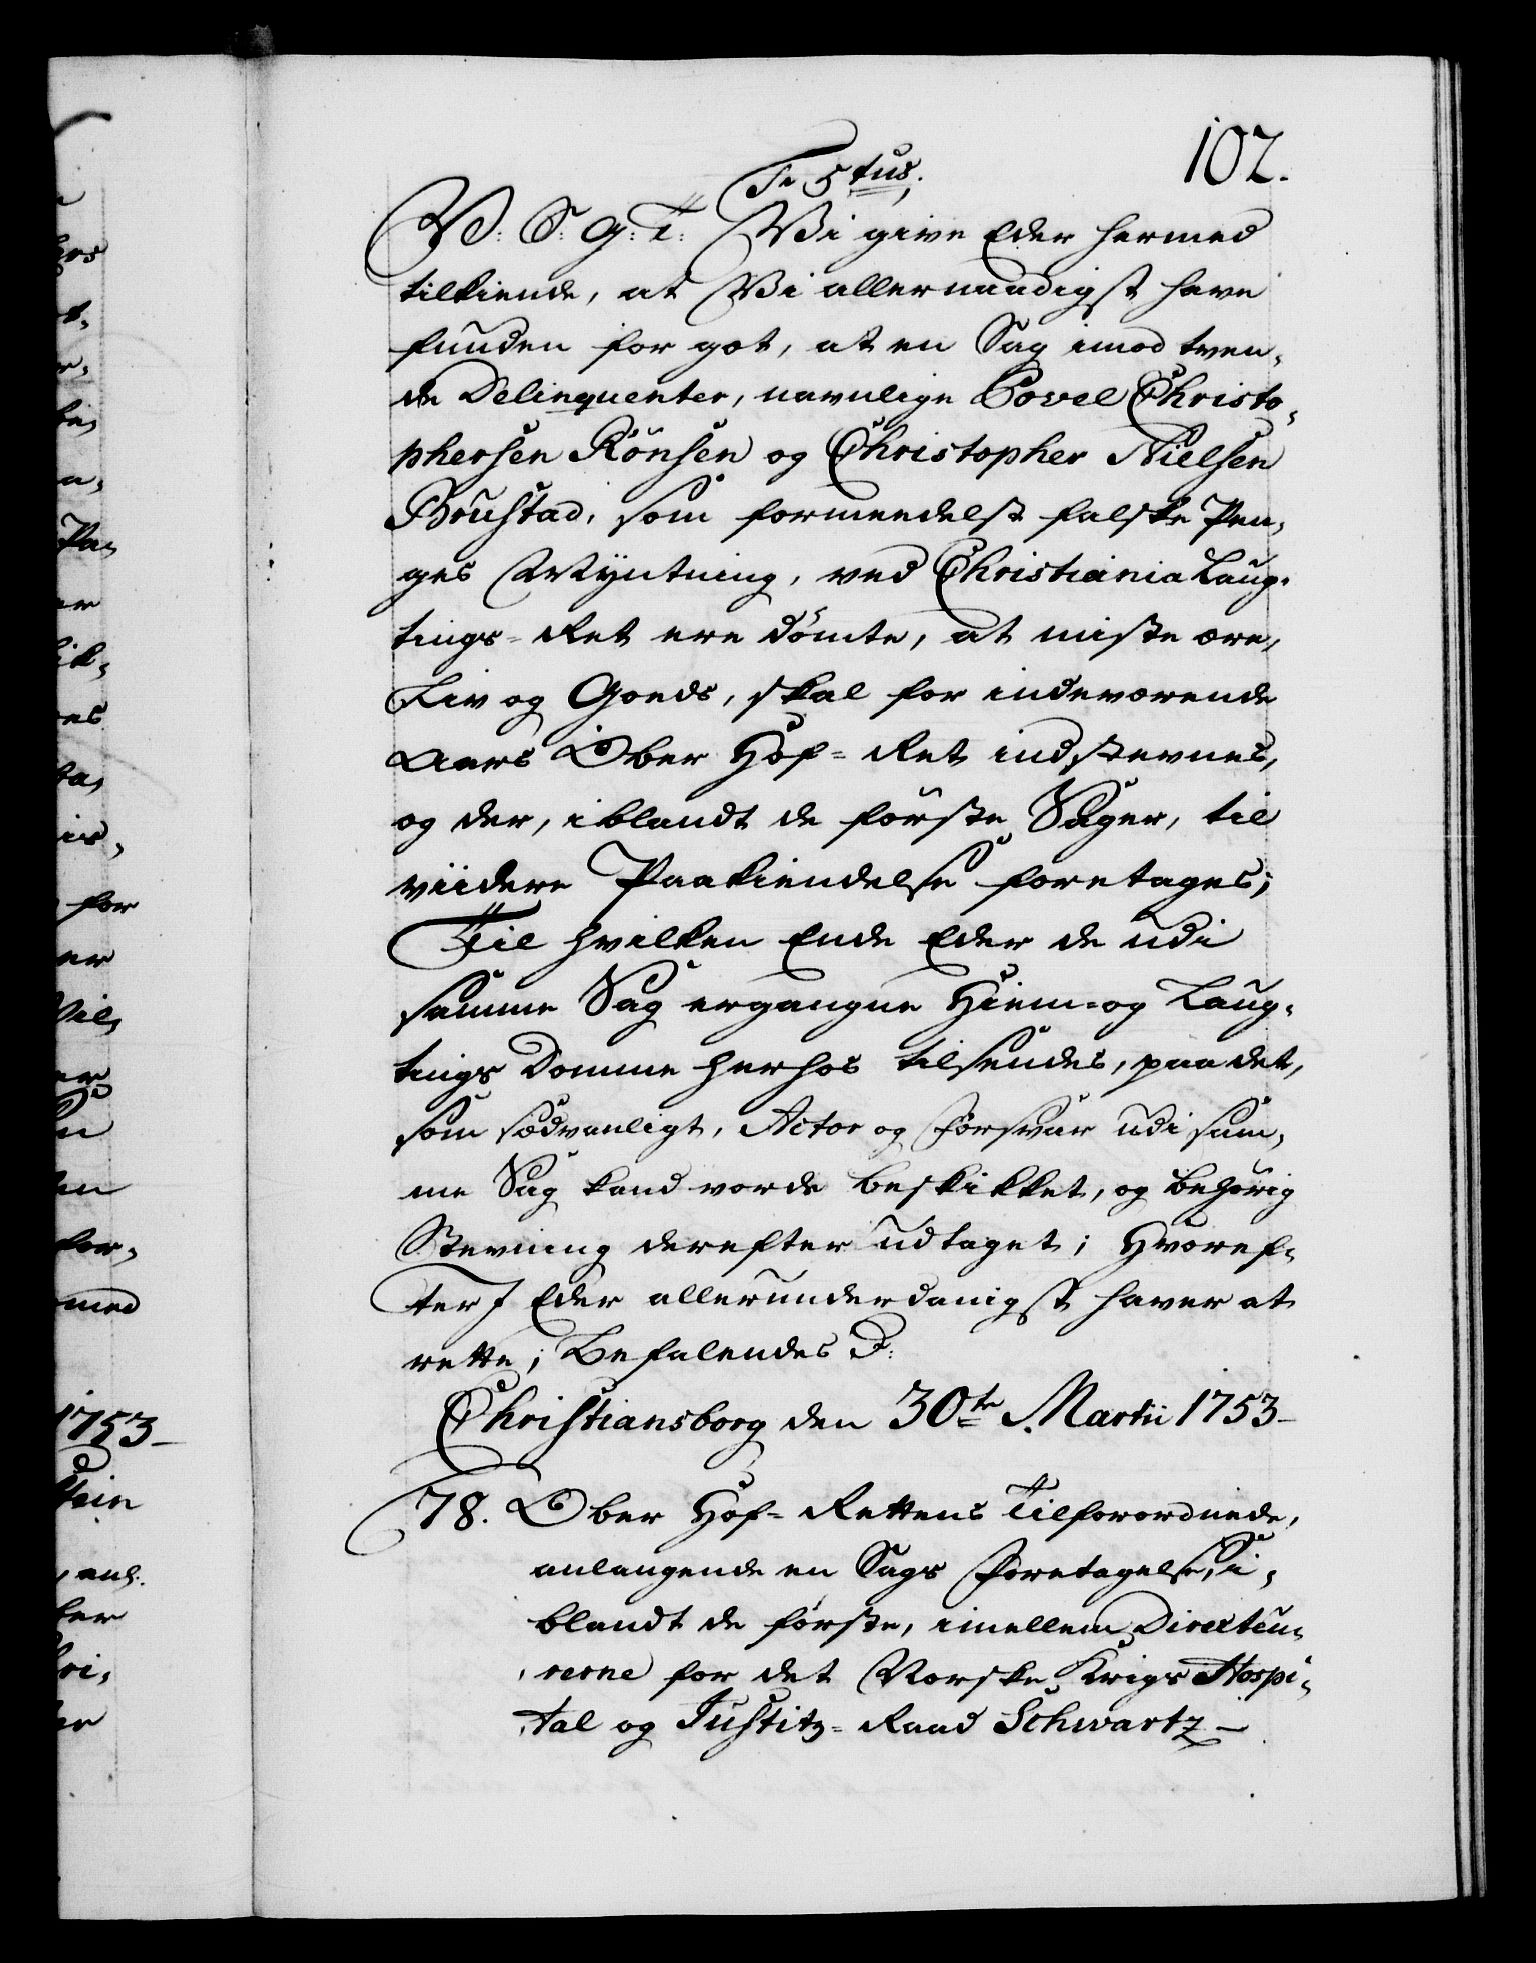 102.
Fr 5tus.
V: S: G: T: Wi give Eder hermed
tilkiende, at Wi allernaadigst have
funden for got, at en Sag imod tven-
de Delinquenter, navnlige Povel Christo-
phersen Rönsen og Christopher Nielsen
Broustad, som formedelst falske Pen-
ges Myntning, ved Christiania Laug-
tings-Ret ere dömte, at miste ære,
Liv og Goeds, skal for indeværende
Aars Ober Hof-Ret indstevnes,
og der, iblandt de förste Sager, til
viidere Paakiendelse foretages;
Til hvilken Ende Eder de udi
samme Sag ergangne Hiem- og Laug-
tings Domme herhos tilsendes, paa det,
som sædvanligt, Actor og Forsvar udi sam-
me Sag kand vorde beskikket, og behörig
Stevning derefter udtaget; Hvoref-
ter I Eder allerunderdanigst haver at
rette; Befalendes D:
Christiansborg den 30te Martii 1753-
78. Ober Hof-Rettens Tilforordnede,
anlangende en Sags Foretagelse, i-
blandt de förste, imellem Directeu-
rerne for det Norske Krigs Hospi-
tal og Justitz-Raad Schwartz-
hers
t-
r-
te,
a,
Pa,
er
ik-
es
ta,
is,
for
er
Vil,
er
n
en
for-
med
1753-
tein
anl.
ter
ri,
er